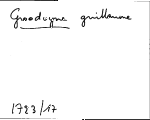 Goodugne guillaume
1723/17